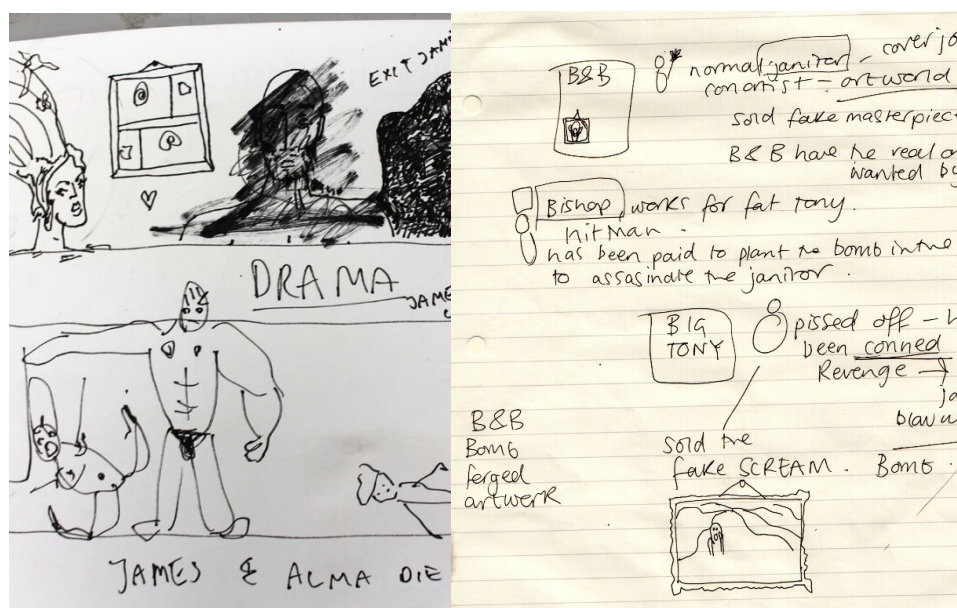 EXIT JAM
DRAMA
JAMES
JAMES & ALMA DIE
B&B
normal janitor -
cover jo
conartist - artworld
sold fake masterpiec
B&B have the real o
wanted by
Bishop, works for fat Tony.
hitman.
has been paid to plant the bomb in the
to assasinate the janitor.
BIG
TONY
pissed off -
been conned
Revenge →
ja
blown
B&B
Bomb
forged
artwork
sold the
fake SCREAM.
Bomb.